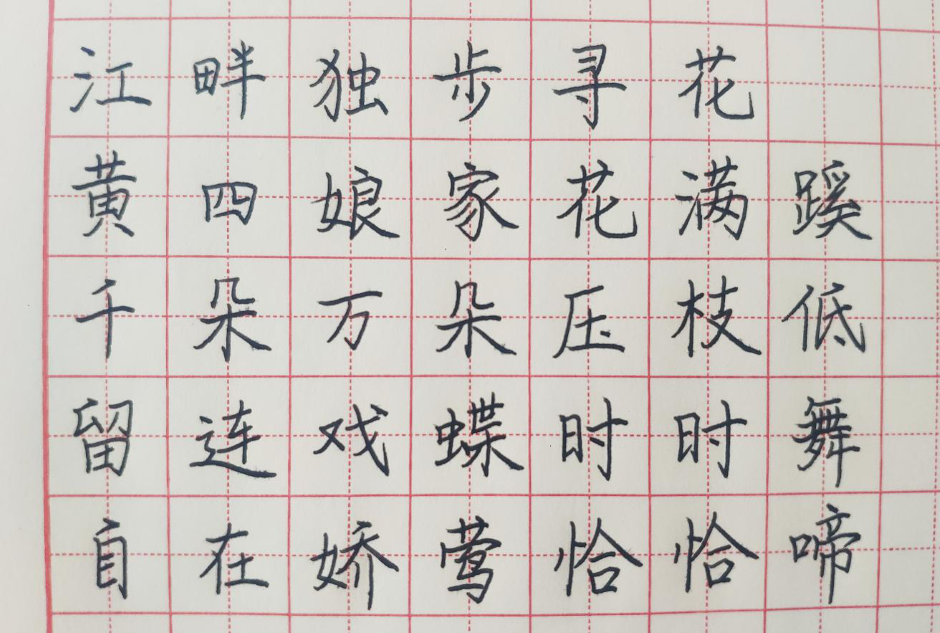 江畔独步寻花
黄四娘家花满蹊
千朵万朵压枝低
留连戏蝶时时舞
自在娇莺恰恰啼